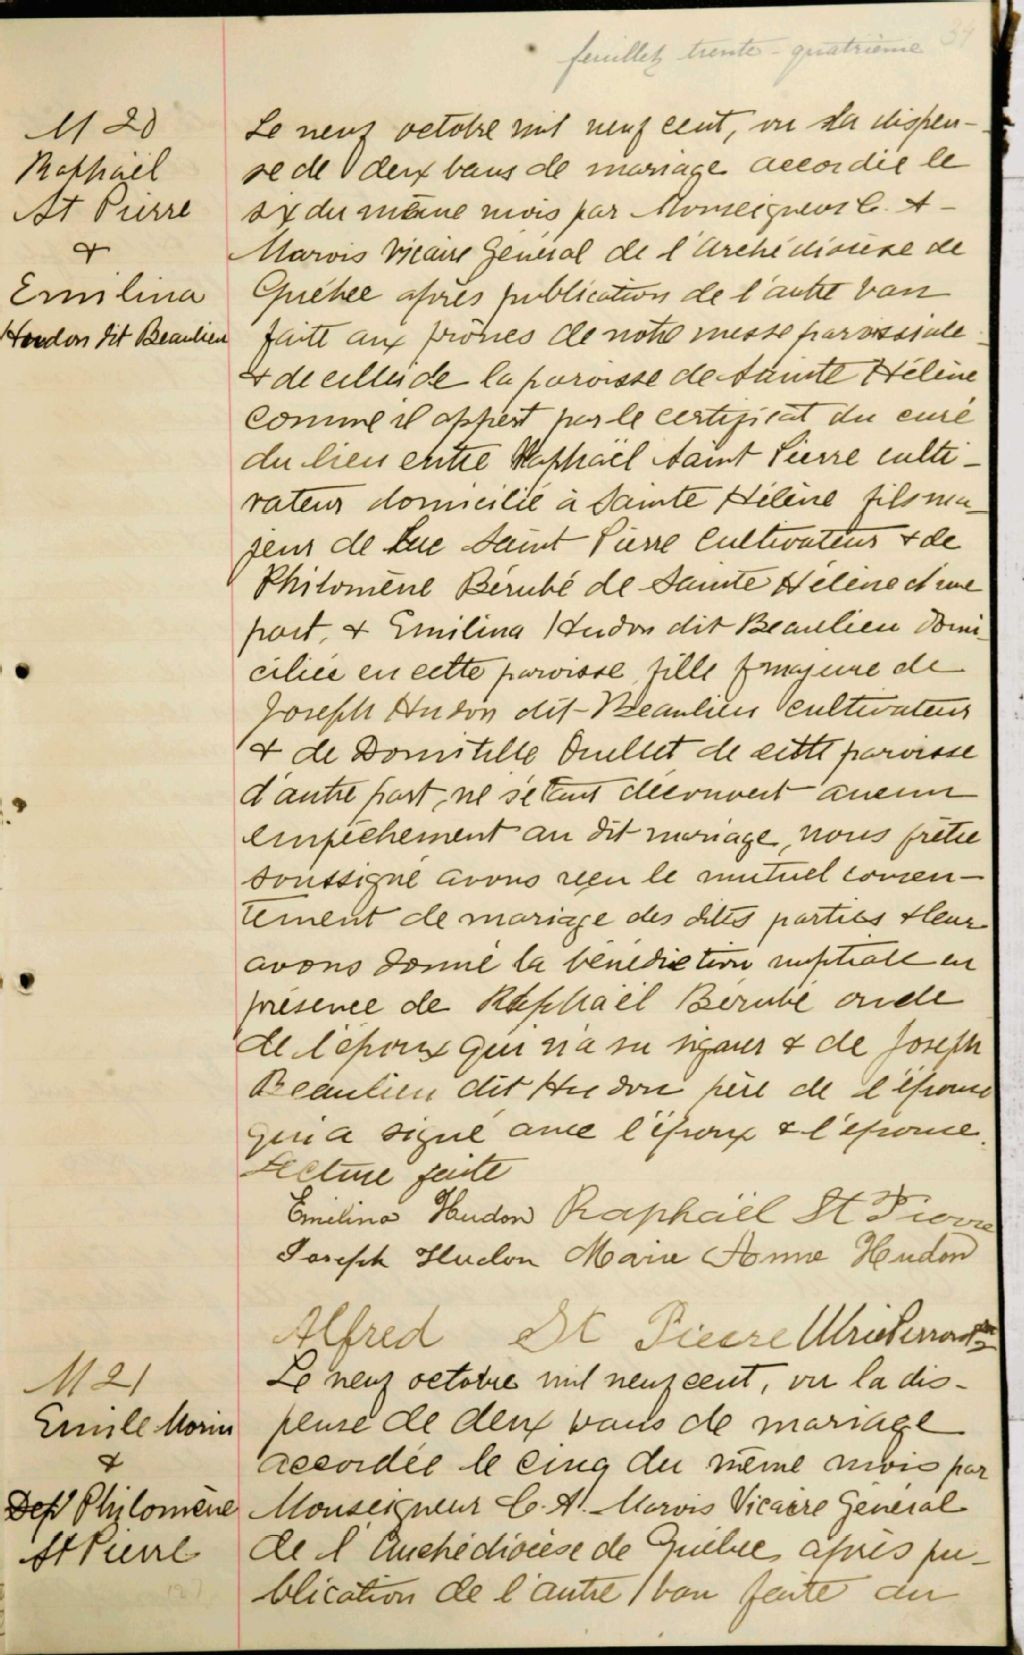 feuillet trente-quatrième 34
M 20
Raphaël
St Pierre
&
Emilina
Hudon dit Beaulieu
Le neuf octobre mil neuf cent, vu la dispen-
se de deux bans de mariage accordée le
six du même mois par Monseigneur C. A-
Marois Vicaire Général de l'Archidiocèse de
Québec après publication de l'autre ban
faite aux prônes de notre messe paroissiale
& de celle de la paroisse de Sainte Hélène
comme il appert par le certificat du curé
du lieu entre Raphaël Saint Pierre culti-
vateur domicilié à Sainte Hélène fils ma-
jeur de Luc Saint Pierre cultivateur & de
Philomène Bérubé de Sainte Hélène d'une
part, & Emilina Hudon dit Beaulieu domi-
ciliée en cette paroisse, fille majeure de
Joseph Hudon dit-Beaulieu cultivateur
& de Domitille Ouellet de cette paroisse
d'autre part, ne s'étant découvert aucun
empêchement au dit mariage, nous prêtre
soussigné avons reçu le mutuel consen-
tement de mariage des dites parties & leur
avons donné la bénédiction nuptiale en
présence de Raphaël Bérubé oncle
de l'époux qui n'a su signer & de Joseph
Beaulieu dit Hudon père de l'épouse
qui a signé avec l'époux & l'épouse.
Lecture faite
Emilina Hudon Raphaël St Pierre
Joseph Hudon Marie Anne Hudon
Alfred St Pierre Ulric Perron Ptre
M 21
Emile Morin
&
Dep Philomène
St Pierre
Le neuf octobre mil neuf cent, vu la dis-
pense de deux bans de mariage
accordée le cinq du même mois par
Monseigneur C. A. Marois Vicaire Général
de l'Archidiocèse de Québec, après pu-
blication de l'autre ban faite au
127